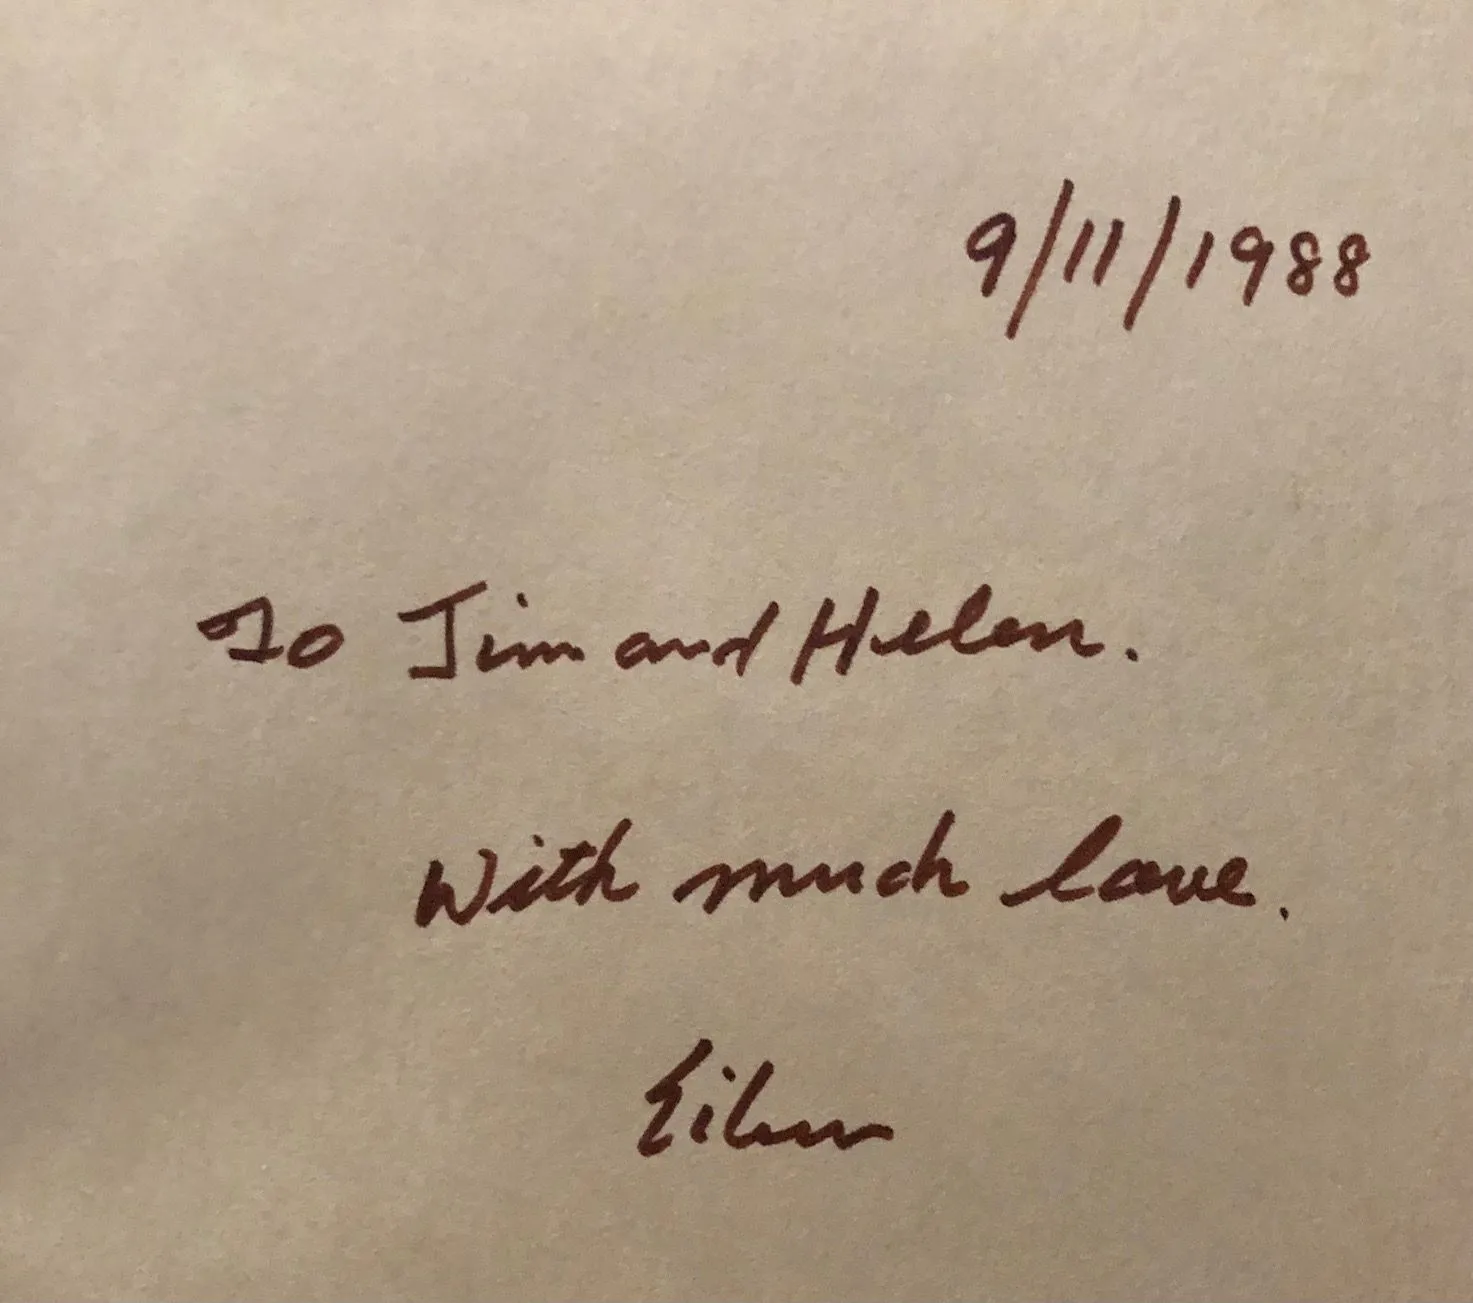 9/11/1988
To Jim and Helen.
With much love.
Eileen